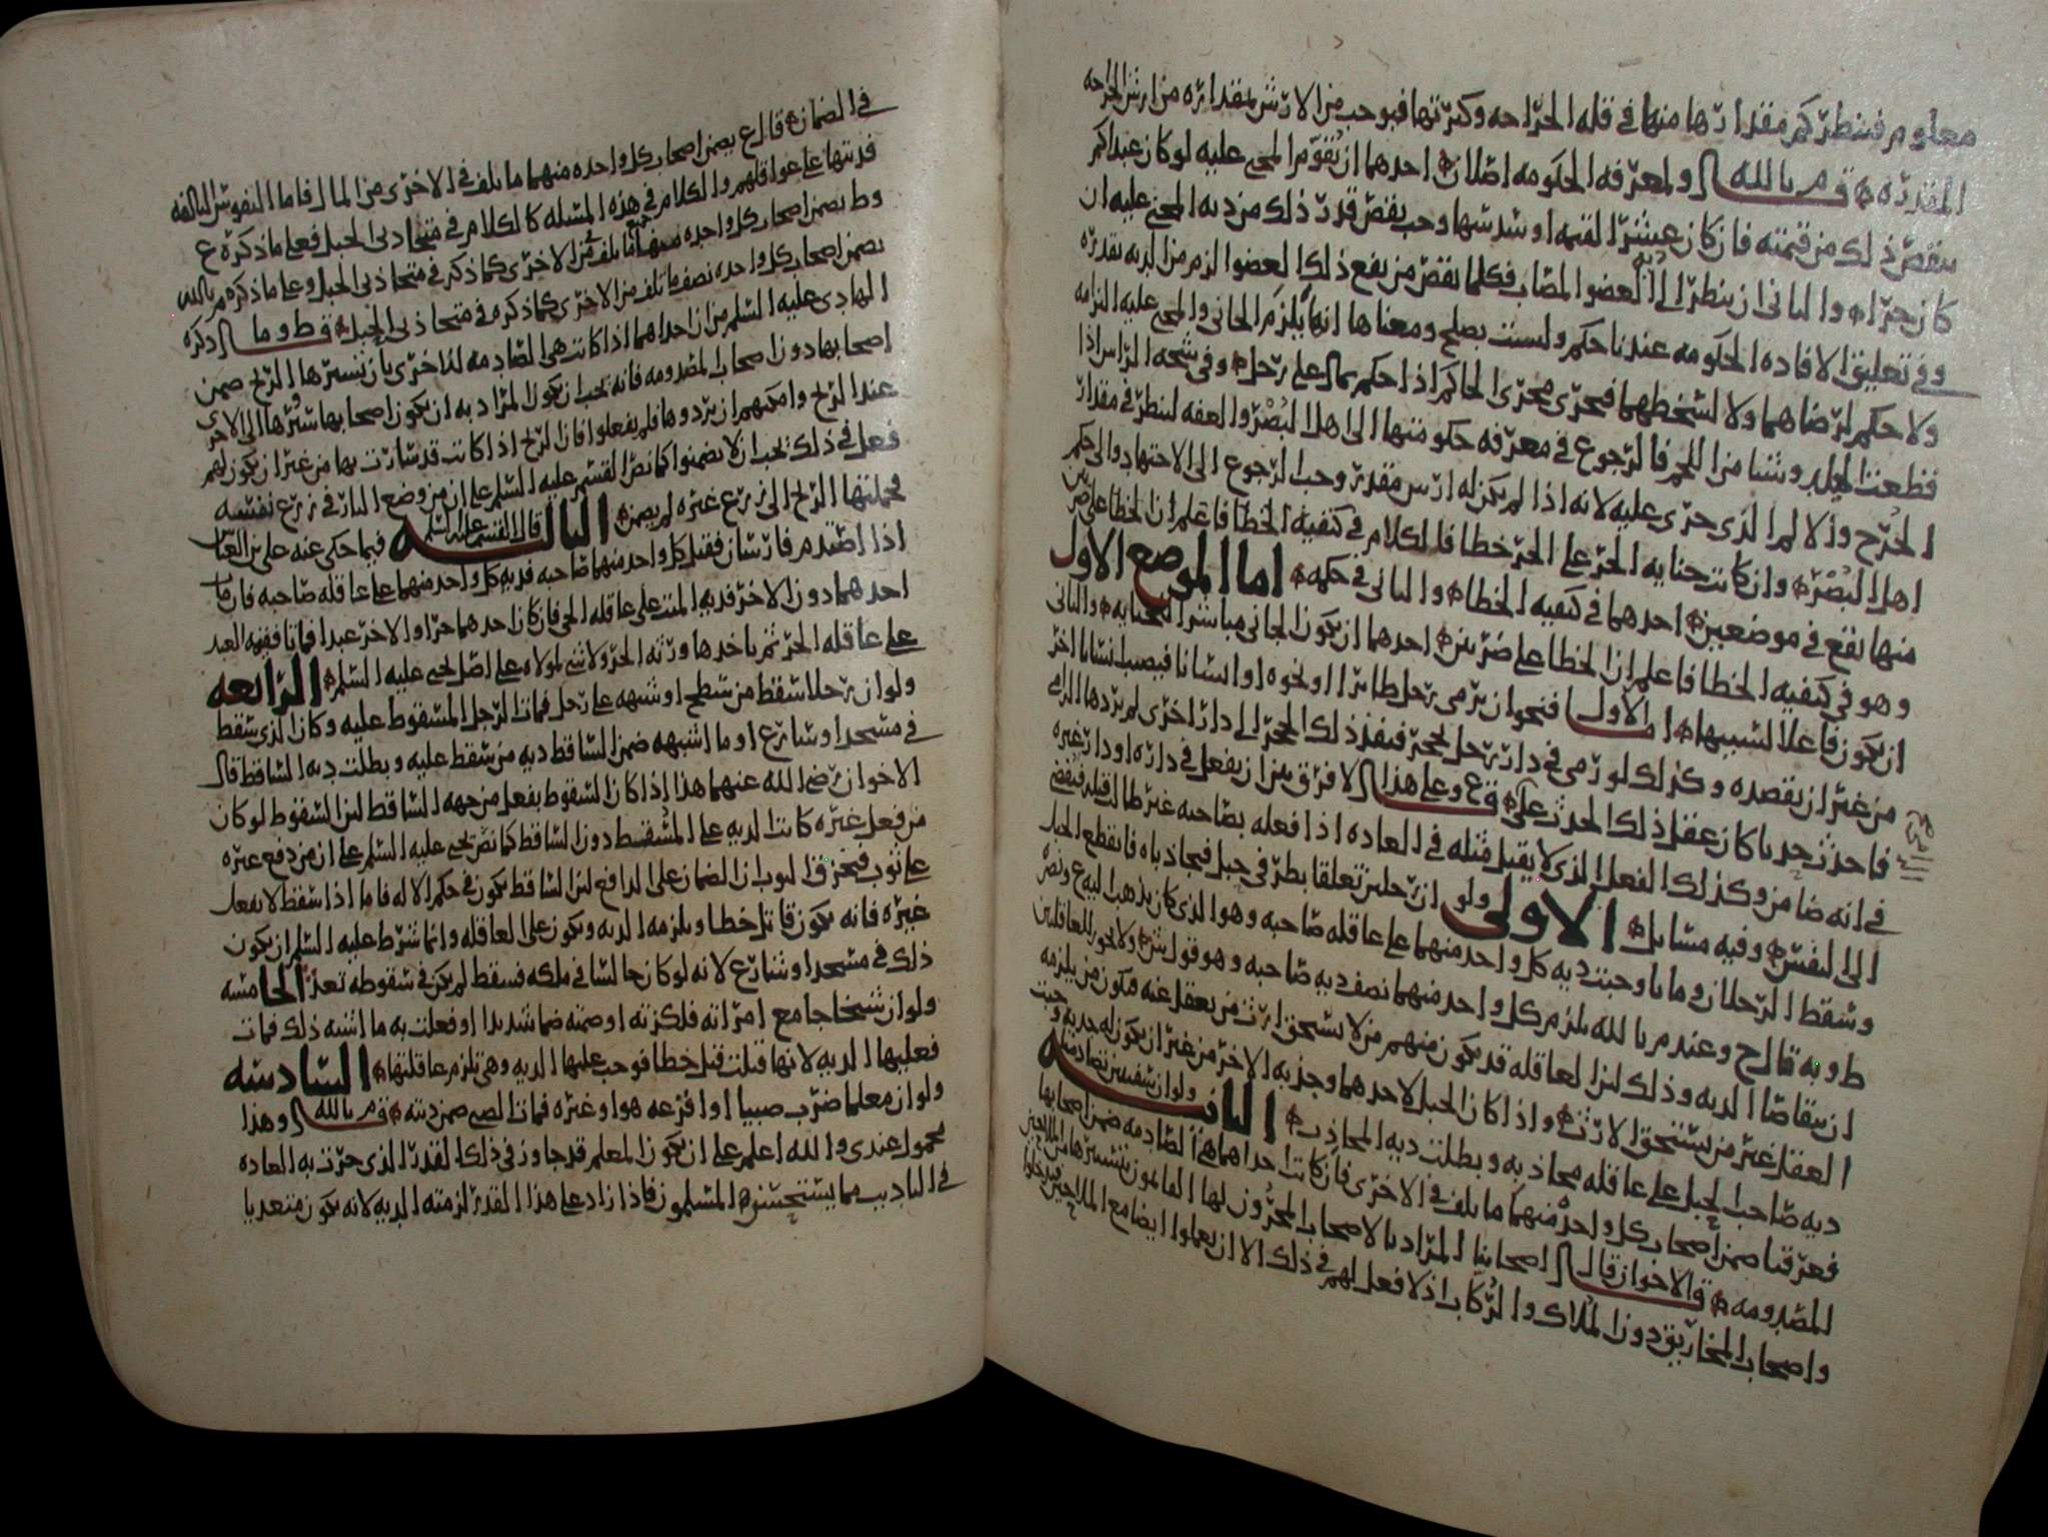 معلوم فينظر كم مقدارها منها في قله الجراحه وكثرتها فيوجب من الارش بمقداره من ارش الجراحه
المقدره قـ م بالله ولمعرفه الحكومه اصلان احدهما ان يقوم المجنى عليه لو كان عبدا كم
ينقص ذلك من قيمته فان كان عشر القيمه او سدسها وجب بقصر قدر ذلك من ديه المجني عليه ان
كان حرا والثاني ان ينظر الى ديه العضو المصاب فكلما نقص من نفع ذلك العضو الزم من الديه بقدره
وفي تعليق الافاده الحكومه عندنا حكم وليست بصلح ومعناها انها يلزم الجاني والمجني عليه التزامه
ولا حكم لرضاهما ولا لسخطهما فيجري مجرى الحاكم اذا حكم بمال على رجل وفي شجه الراس اذا
قطعت الجلد وشيئا من اللحم فالرجوع في معرفه حكومتها الى اهل البصر والعفه لينظر في مقدار
الجرح والالم الذي جرى عليه لانه اذا لم يكن له ارش مقدر وجب الرجوع الى الاجتهاد والى حكم
اهل البصر وان كانت جنايه الحر على الحر خطا فالكلام في كيفيه الخطا فاعلم ان الخطا على ضربين
منها يقع في موضعين احدهما في كيفيه الخطا والثاني في حكمه اما الموضع الاول
وهو في كيفيه الخطا فاعلم ان الخطا على ضربين احدهما ان يكون الجاني مباشرا للجنايه والثاني
ان يكون فاعلا لسببها اما الاول فنحو ان يرمي رجل طائرا او نحوه او انسانا فيصيب انسانا اخر
من غير ان يقصده وكذلك لو رمى في دار رجل بحجر فينفذ ذلك الحجر الى دار اخرى لم يردها الرامي
فاحدث حدثا كان عقل ذلك الحدث عليه قـ ع وعلى هذا لا فرق بين ان يفعل في داره او دار غيره
في انه ضامن وكذلك الفعل الذي لا يقبل مثله في العاده اذا فعله بصاحبه غير طالب قتله فيفضي
الى النفس وفيه مسائل الاولى ولو ان رجلين تعلقا بطرفي حبل فتجاذباه فانقطع الحبل
وسقط الرجلان وماتا وجبت ديه كل واحد منهما على عاقله صاحبه وهو الذي كان يذهب اليه ع ونصره
ط وبه قال ح وعند م بالله يلزم كل واحد منهما نصف ديه صاحبه وهو قول ش ولا يجوز للعاقلتين
ان يتقاصا الديه وذلك لان العاقله قد يكون منهم من لا يستحق ارث من يعقل عنه فيكون من يلزمه
العقل غير من يستحق الارث واذا كان الحبل لاحدهما وجذبه الاخر من غير ان يكون له جذبه وجبت
ديه صاحب الحبل على عاقله مجاذبه وبطلت ديه المجاذب الثانيه ولو ان سفينتين تصادمتا
فغرقتا ضمن اصحاب كل واحده منهما ما تلف في الاخرى فان كانت احداهما هي الصادمه ضمن اصحابها
المصدومه قـ الاخوان قال اصحابنا المراد بالاصحاب المجرون لها القائمون بتسييرها الملاحين
واصحاب المخاريق دون الملاك والركاب اذ لا فعل لهم في ذلك الا ان يعملوا ايضا مع الملاحين فيدخلوا
في الضمان قال ع يضمن اصحاب كل واحده منهما ما تلف في الاخرى من المال فاما النفوس التالفه
فديتها على عواقلهم والكلام في هذه المسئله كالكلام في متجاذبي الحبل فعلى ما ذكره ع
وط يضمن اصحاب كل واحده منهما جميع ما تلف في الاخرى كما ذكر في متجاذبي الحبل وعلى ما ذكره م بالله
يضمن اصحاب كل واحده نصف ما تلف من الاخرى كما ذكره في متجاذبي الحبل قـ ط وما ذكره
الهادي عليه السلم من ان احداهما اذا كانت هي الصادمه للاخرى بان تسيرها الريح ضمن
اصحابها دون اصحاب المصدومه فانه يجب ان يكون المراد به ان يكون اصحابها سيرها الى الاخرى
عند الريح وامكنهم ان يردوها فلم يفعلوا فان الريح اذا كانت قد سارت بها من غير ان يكون لهم
فعل في ذلك يجب ان لا يضمنوا كما نص القسم عليه السلم على ان من وضع النار في زرع نفسه
فحملتها الريح الى زرع غيره لم يضمن الثالثه قال القسم عليه السلم فيما حكى عنه علي بن العباس
اذا اصطدم فارسان فقتل كل واحد منهما صاحبه فديه كل واحد منهما على عاقله صاحبه فان مات
احدهما دون الاخر فديه الميت على عاقله الحي فان كان احدهما حرا والاخر عبدا فماتا فقيمه العبد
على عاقله الحر ثم ياخدها ورثه الحر ولا شي لمولاه على اصل يحيى عليه السلم الرابعه
ولو ان رجلا سقط من سطح او شبهه على رجل فمات الرجل المسقوط عليه وكان الذي سقط
في مسجد او شارع او ما اشبهه ضمن الساقط ديه من سقط عليه وبطلت ديه الساقط قال
الاخوان رضي الله عنهما هذا اذا كان السقوط بفعل من جهه الساقط لان السقوط لو كان
من فعل غيره كانت الديه على المسقط دون الساقط كما نص يحيى عليه السلم على ان من دفع غيره
على ثوب فتخرق الثوب ان الضمان على الدافع لان الساقط يكون في حكم الاله فاما اذا سقط لا بفعل
غيره فانه يكون قاتل خطا ويلزمه الديه ويكون على العاقله وانما شرط عليه السلم ان يكون
ذلك في مسجد او شارع لانه لو كان جالسا في ملكه فسقط لم يكن في سقوطه تعد الخامسه
ولو ان شيخا جامع امراته فلكزته او ضمته ضما شديدا او فعلت به ما اشبه ذلك فمات
فعليها الديه لانها قتلت قتل خطا فوجب عليها الديه وهي تلزم عاقلتها السادسه
ولو ان معلما ضرب صبيا او افزعه هو او غيره فمات الصبي ضمن ديته قـ م بالله وهذا
محمول عندي والله اعلم على ان يكون المعلم قد جاوز في ذلك القدر الذي جرت به العاده
في التاديب مما يستحسنه المسلمون فاذا زاد على هذا القدر لزمته الديه لانه يكون متعديا